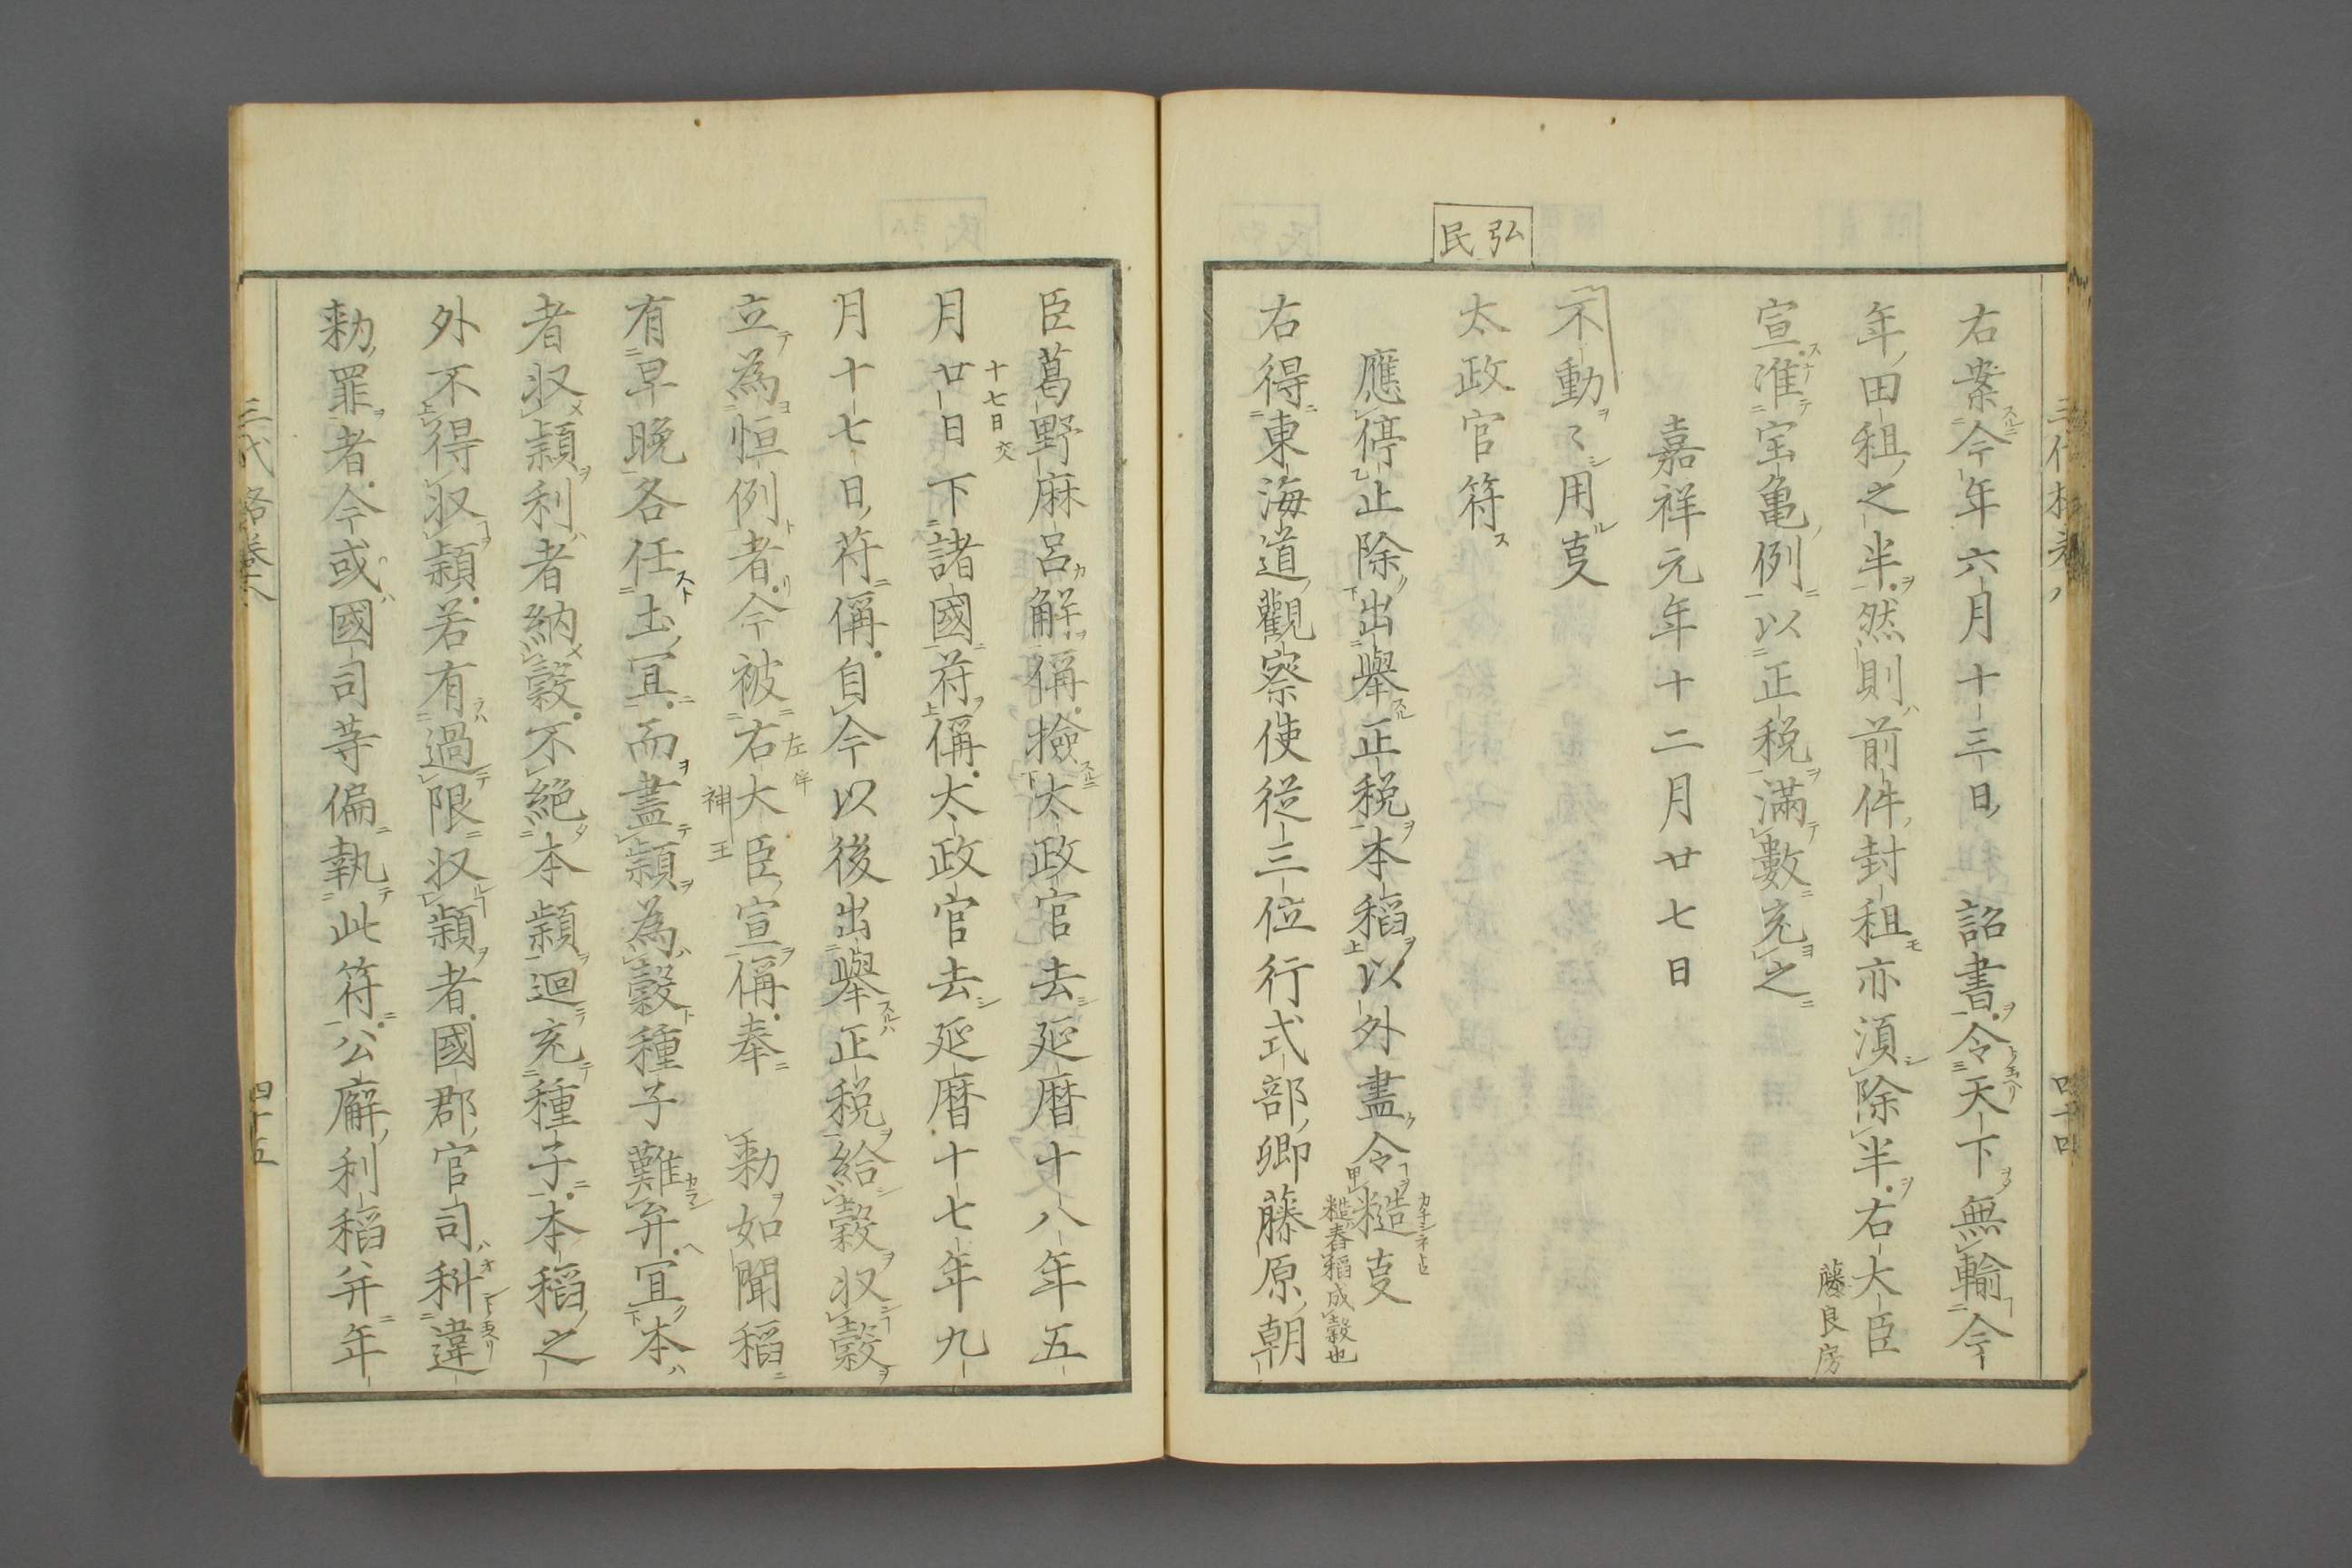 弘民
右案今年六月十三日詔書令天下無輸今
年田租之半然則前件封租亦湏除半右大臣
藤良房
宣准宝亀例以正税滿數充之
嘉祥元年十二月廿七日
不動〻用㕝
太政官符
應停止除出舉正税本稻以外盡令糙㕝
糙舂稻成穀也
右得東海道觀察使從三位行式部卿藤原朝
三代格卷八
四十五
臣葛野麻呂解稱撿太政官去延暦十八年五
十七日交
月廿日下諸國符偁太政官去延暦十七年九
月十七日符偁自今以後出舉正税給穀収穀
立為恒例者今被右大臣宣偁奉 勑如聞稻
左 神王
有早晚各任土冝而盡穎為穀種子難弁冝本
者収穎利者納穀不絶本穎廻充種子本稻之
外不得収穎若有過限収穎者國郡官司科違
勑罪者今或國司等偏執此符公廨利稻并年